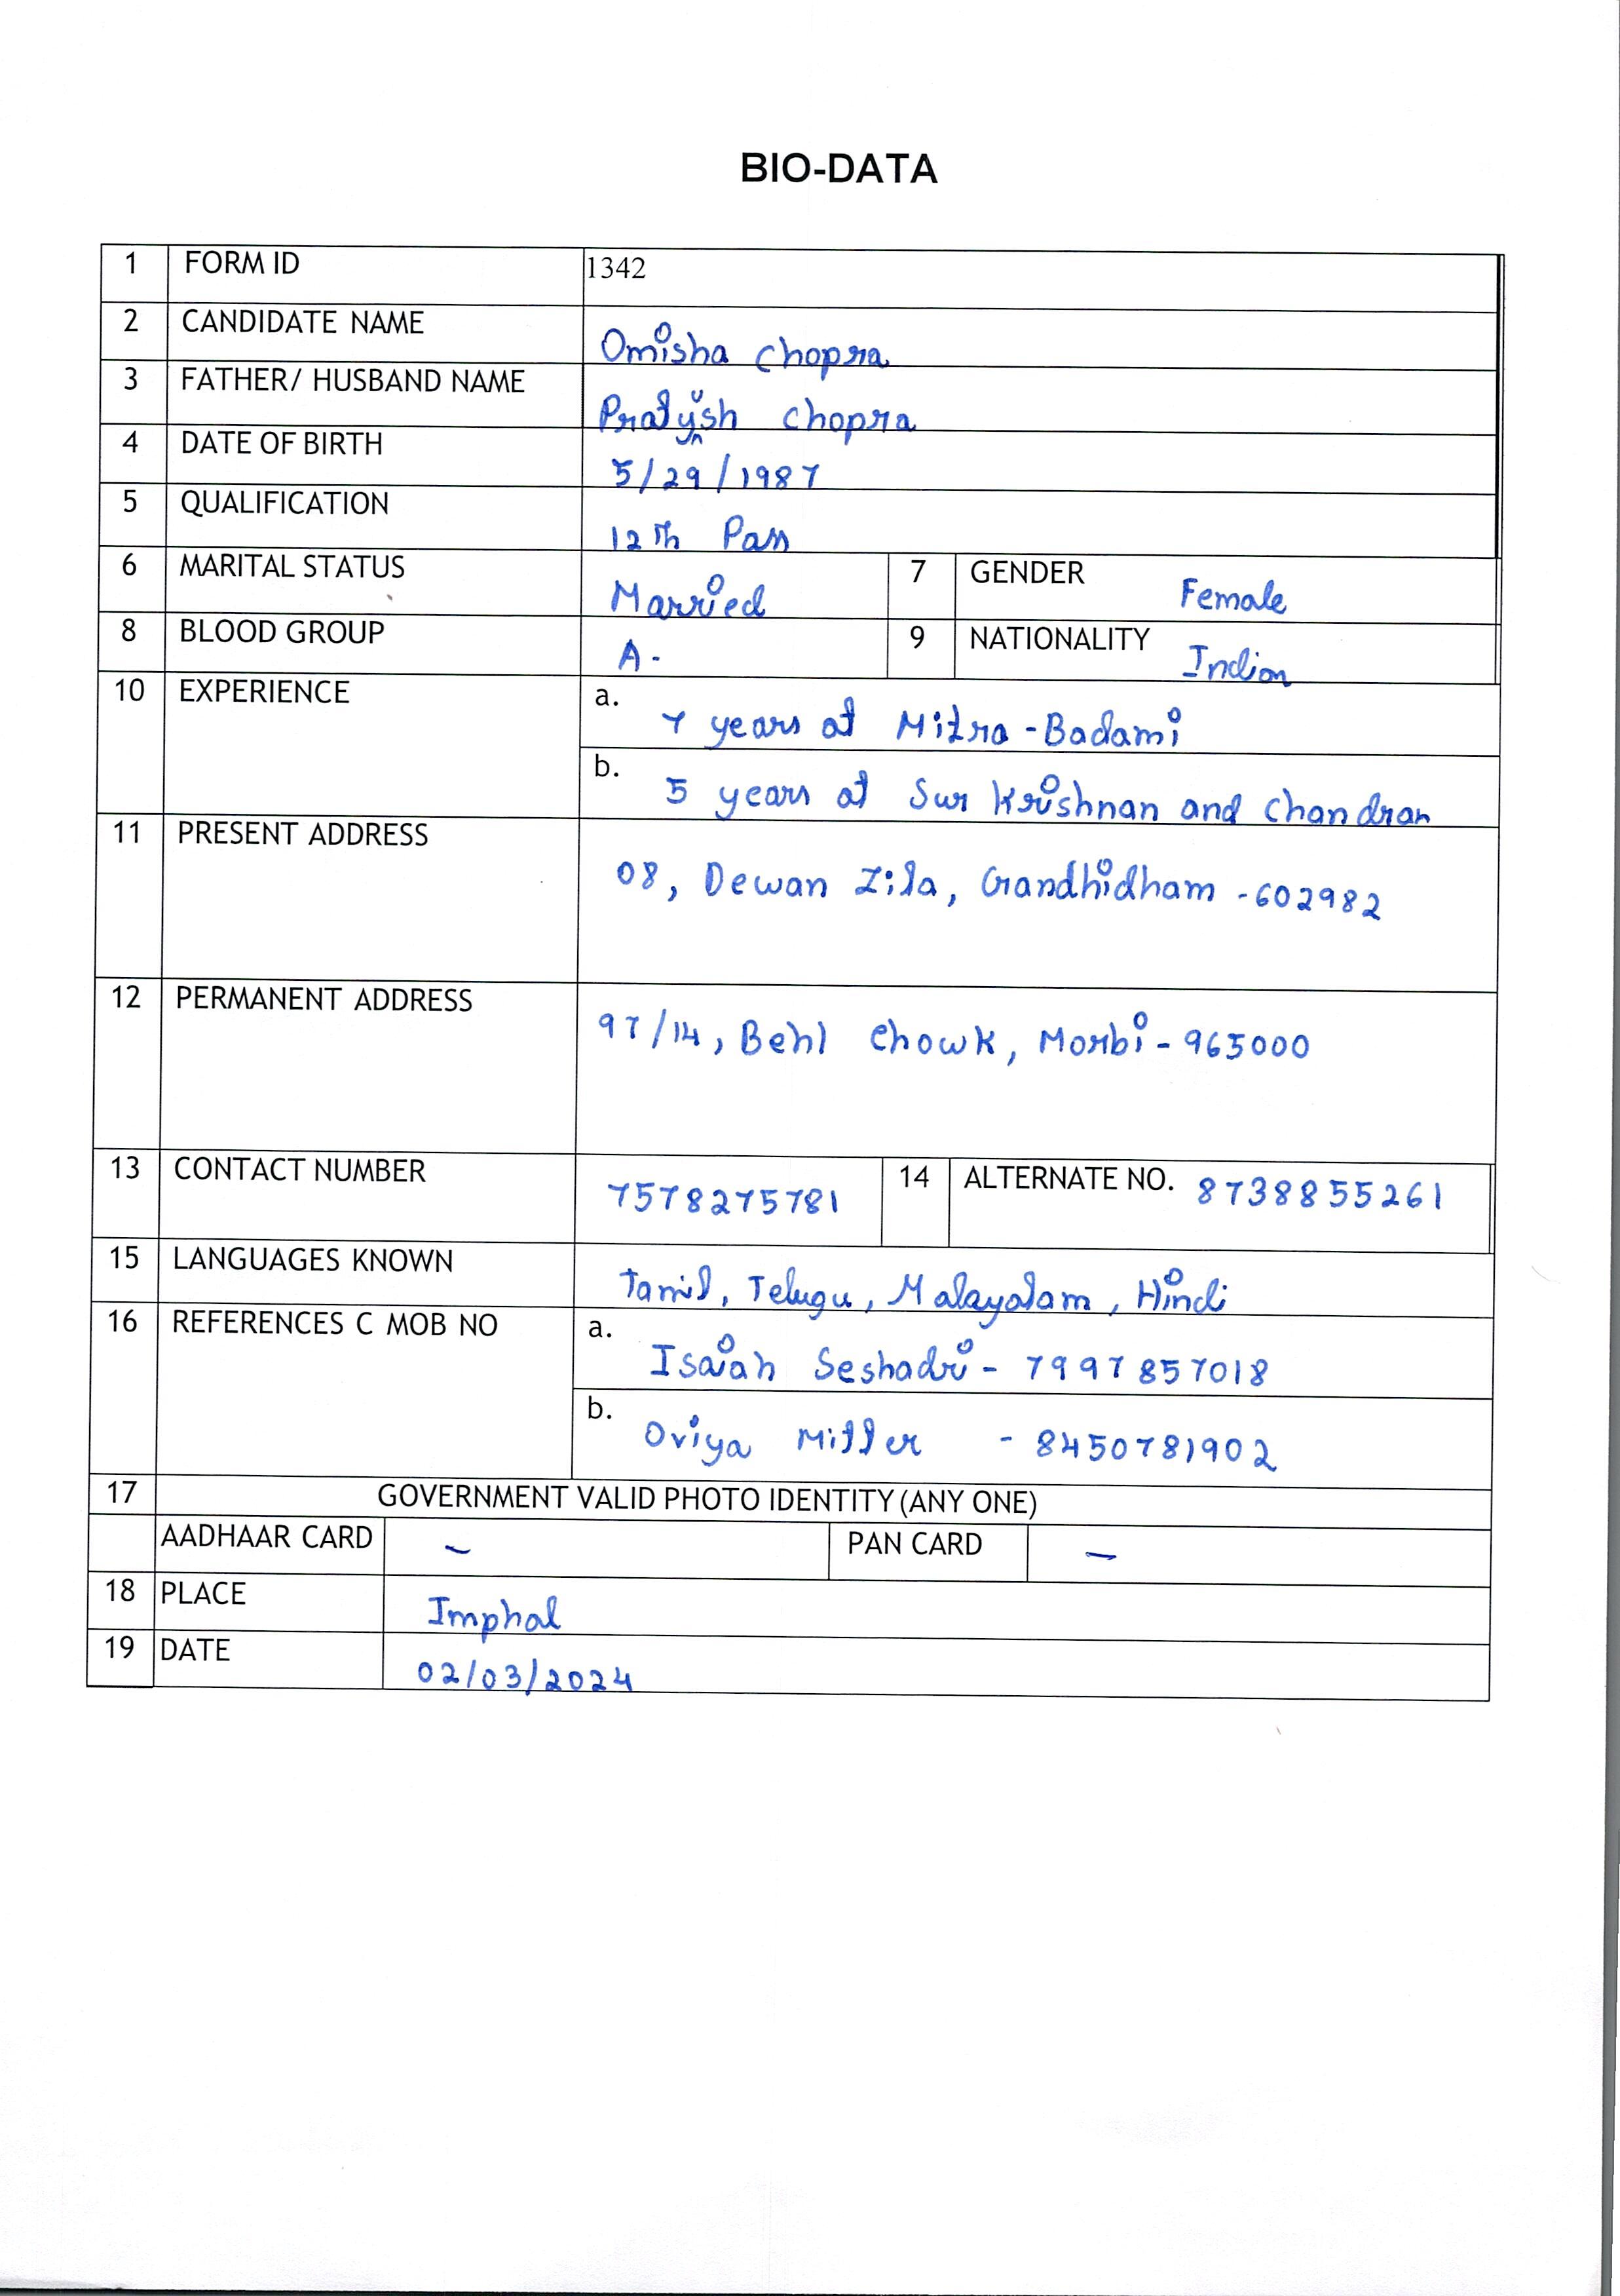 BIO-DATA
1 FORM ID 1342
2 CANDIDATE NAME Omisha Chopra
3 FATHER/ HUSBAND NAME Pratyush Chopra
4 DATE OF BIRTH 5/29/1987
5 QUALIFICATION 12th Pass
6 MARITAL STATUS Married 7 GENDER Female
8 BLOOD GROUP A- 9 NATIONALITY Indian
10 EXPERIENCE a. 7 years at Mitra-Badami
b. 5 years at Sur Krishnan and Chandran
11 PRESENT ADDRESS 08, Dewan Zila, Gandhidham -602982
12 PERMANENT ADDRESS 97/14, Behl Chowk, Morbi - 965000
13 CONTACT NUMBER 7578275781 14 ALTERNATE NO. 8738855261
15 LANGUAGES KNOWN Tamil, Telugu, Malayalam, Hindi
16 REFERENCES C MOB NO a. Isaiah Seshadri - 7997857018
b. Oviya Miller - 8450781902
17 GOVERNMENT VALID PHOTO IDENTITY (ANY ONE)
AADHAAR CARD - PAN CARD -
18 PLACE Imphal
19 DATE 02/03/2024